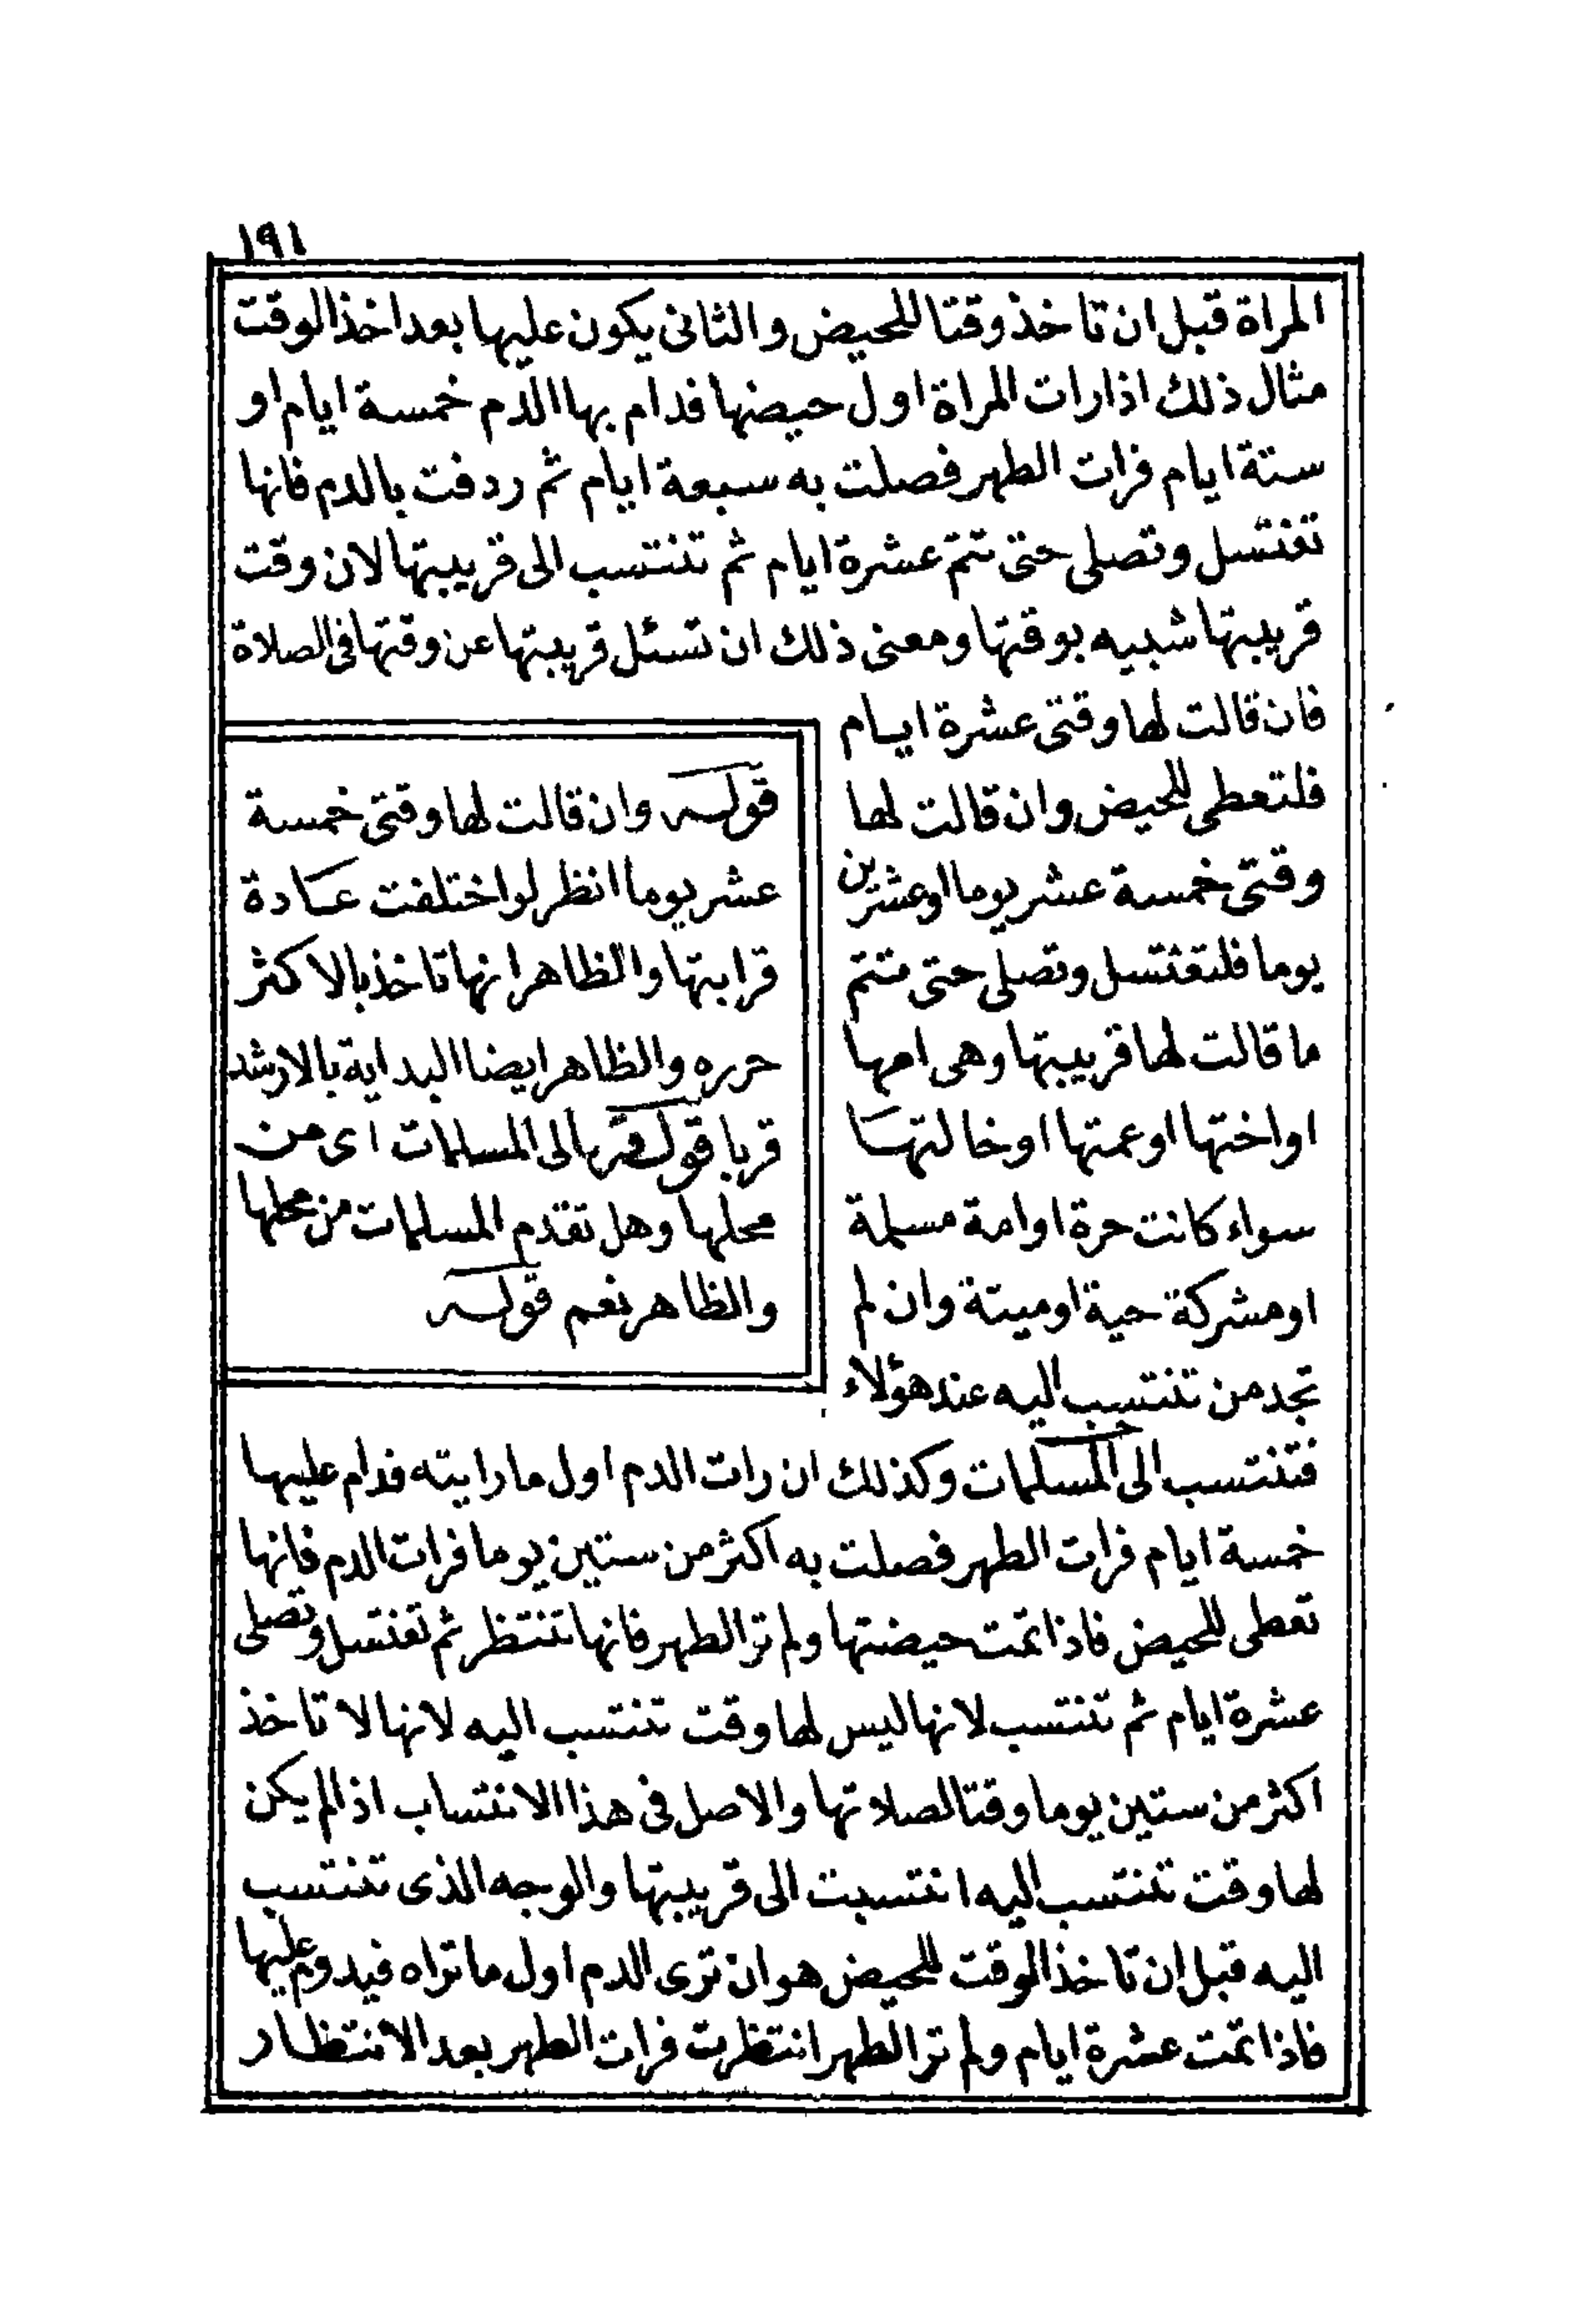 ١٩١
المراة قبل ان تاخذ وقتا للحيض والثانى يكون عليها بعد اخذ الوقت
مثال ذلك اذا رات المراة اول حيضها فدام بها الدم خمسة ايام او
ستة ايام فرات الطهر فصلت به سبعة ايام ثم ردفت بالدم فانها
تغتسل وتصلى حتى تتم عشرة ايام ثم تنتسب الى قريبتها لان وقت
قريبتها شبيه بوقتها ومعنى ذلك ان تسئل قريبتها عن وقتها فى الصلاة
فان قالت لها وقتى عشرة ايام
فلتعطى للحيض وان قالت لها
وقتى خمسة عشر يوما او عشرين
يوما فلتغتسل وتصلى حتى تتم
ما قالت لها قريبتها وهى امها
او اختها او عمتها او خالتها
سواء كانت حرة او امة مسلمة
او مشركة حية او ميتة وان لم
تجد من تنتسب اليه عند هؤلاء
فتنتسب الى المسلمات وكذلك ان رات الدم اول ما رايته فدام عليها
خمسة ايام فرات الطهر فصلت به اكثر من ستين يوما فرات الدم فانها
تعطى للحيض فاذا تمت حيضتها ولم تر الطهر فانها تنتظر ثم تغتسل وتصلى
عشرة ايام ثم تنتسب لانها ليس لها وقت تنتسب اليه لانها لا تاخذ
اكثر من ستين يوما وقتا لصلاتها والاصل فى هذا الانتساب اذا لم يكن
لها وقت تنتسب اليه انتسبت الى قريبتها والوجه الذى تنتسب
اليه قبل ان تاخذ الوقت للحيض هو ان ترى الدم اول ما تراه فيدوم عليها
فاذا تمت عشرة ايام ولم تر الطهر انتظرت فرات الطهر بعد الانتظار
قوله وان قالت لها وقتى خمسة
عشر يوما انظر لو اختلفت عادة
قرابتها والظاهر انها تاخذ بالاكثر
حرره والظاهر ايضا البداية بالارشد
قربا قوله الى المسلمات اى من
محلها وهل تقدم المسلمات من محلها
والظاهر نعم قوله